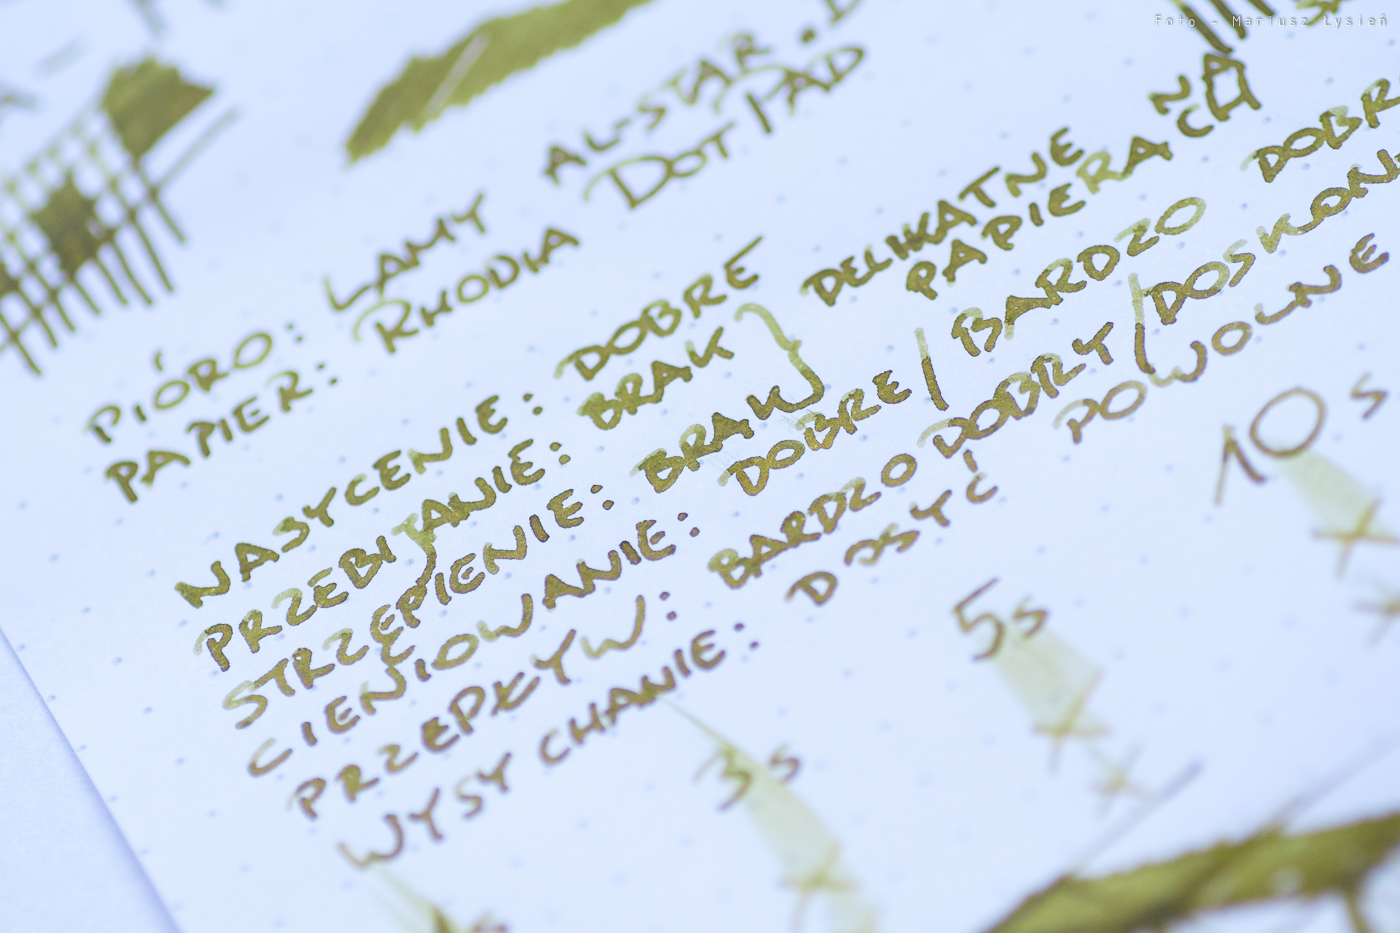 Foto - Mariusz Łysień
PIÓRO: LAMY AL-STAR
PAPIER: RHODIA DOT PAD
NASYCENIE: DOBRE
PRZEBIJANIE: BRAK } DELIKATNE NA
STRZĘPIENIE: BRAK PAPIERACH
CIENIOWANIE: DOBRE / BARDZO
PRZEPŁYW: BARDZO DOBRY /
WYSYCHANIE: DOSYĆ POWOLNE
3s 5s 10s